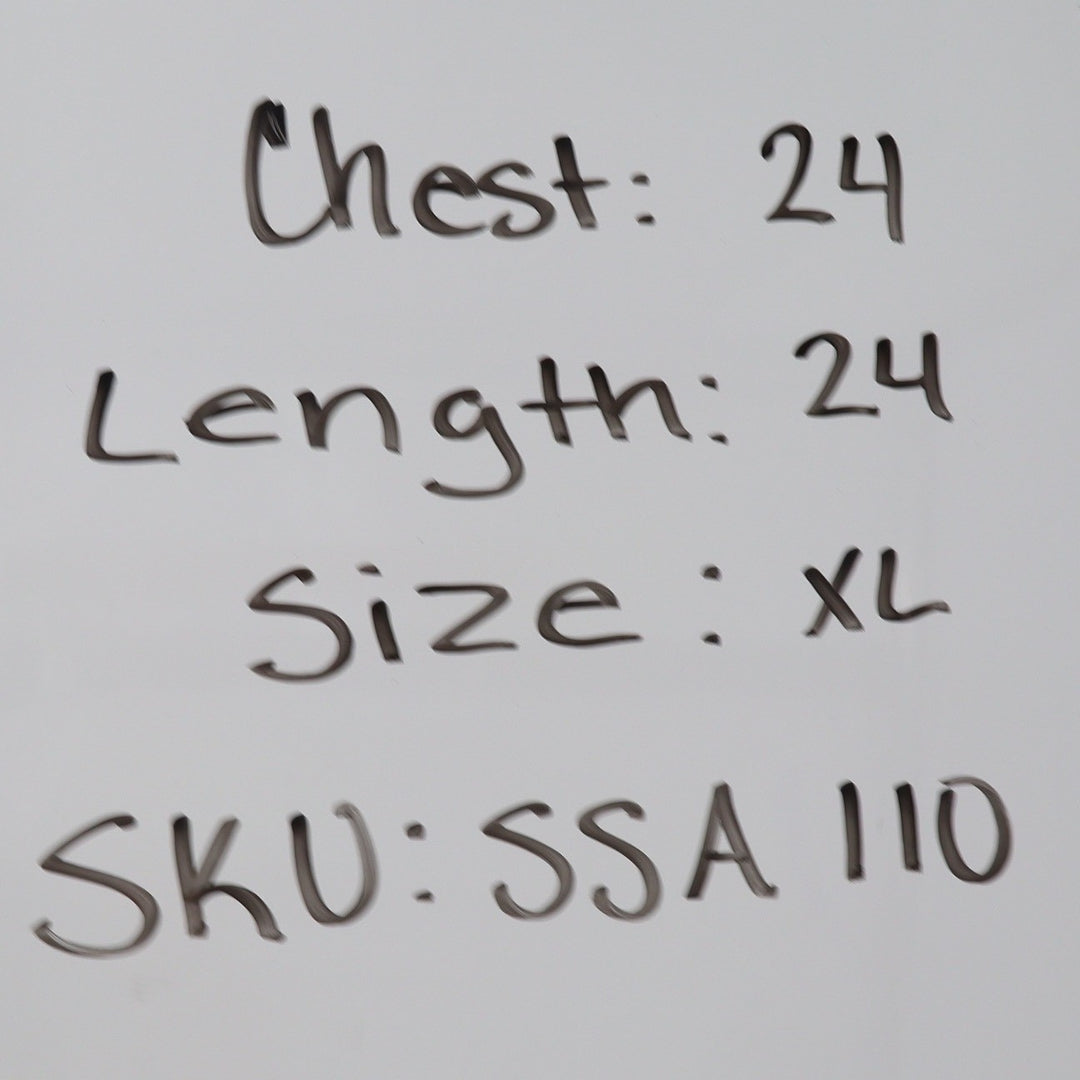 Chest: 24
Length: 24
Size: XL
SKU: SSA 110